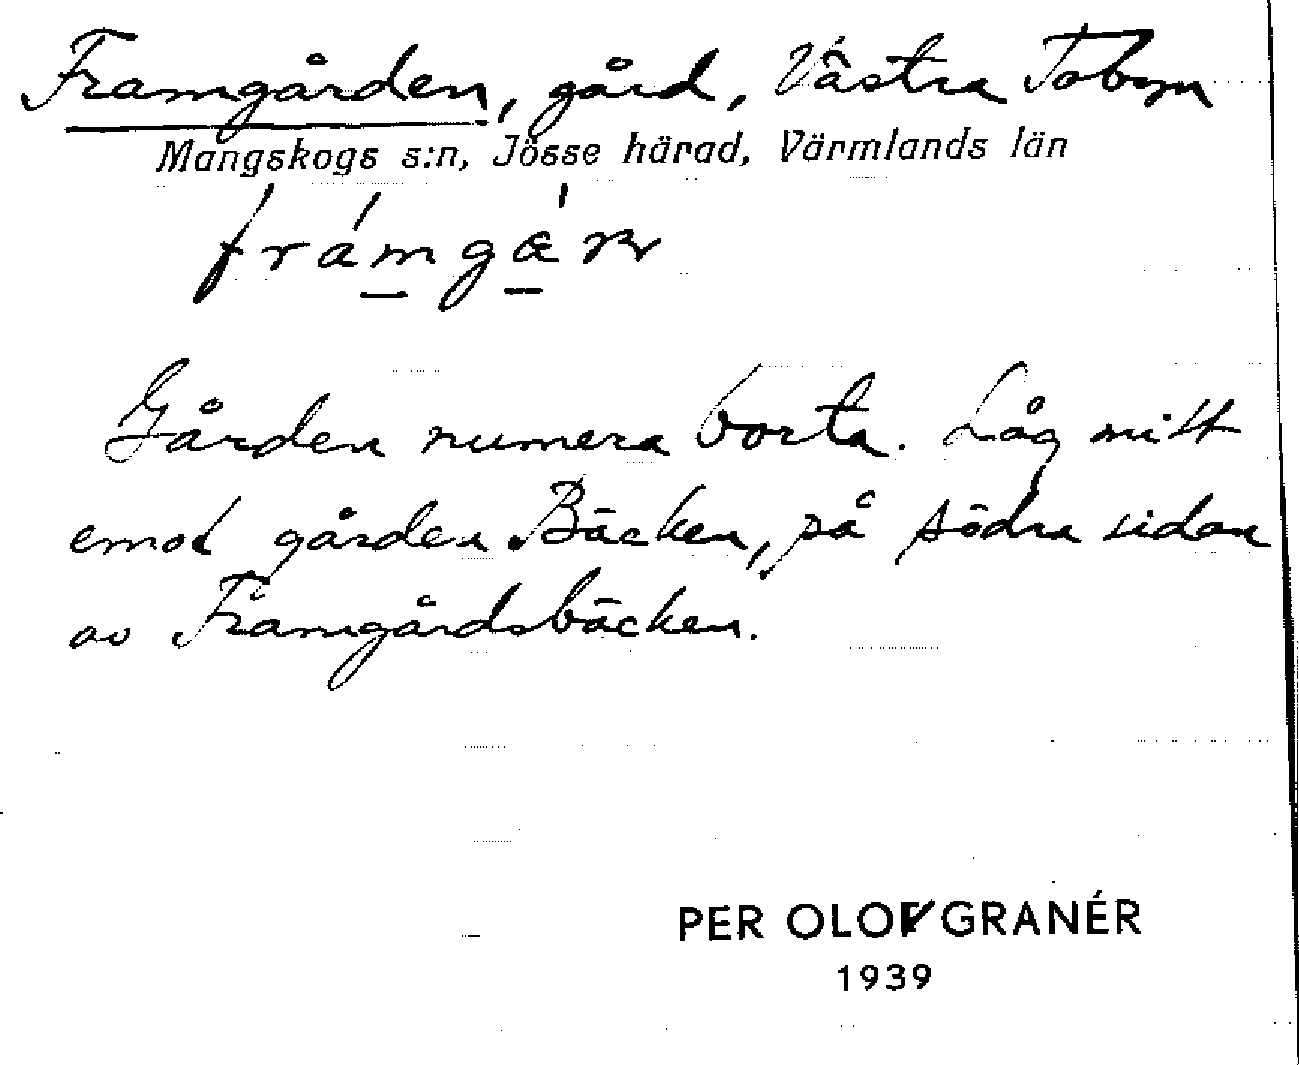 Framgården, gård, Västra Tobyn
Mangskogs s:n, Jösse härad, Värmlands län
Gården numera borta. Låg mitt
emot gården Bäcken, på södra sidan
av Framgårdsbäcken.
PER OLOF GRANÉR
1939